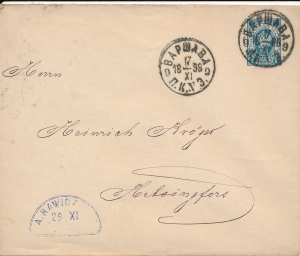 ВАРШАВА
17
18 98
XI
П.К.№3.
ВАРШАВА
Herrn
Heinrich Kröger
Helsingfors
A. RAWICZ
29 XI